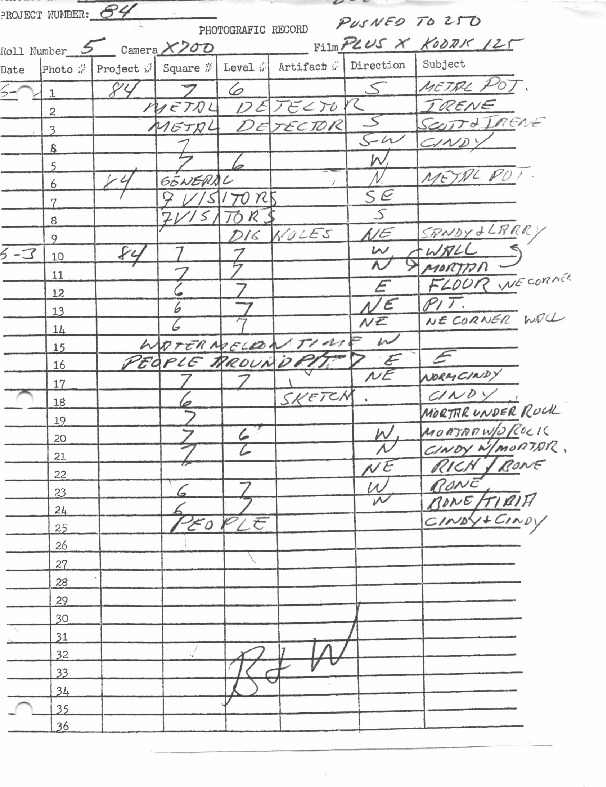 PROJECT NUMBER: 84
PUSHED TO 250
PHOTOGRAFIC RECORD
Roll Number 5 Camera X700 Film PLUS X KODAK 125
Date Photo # Project # Square # Level # Artifact # Direction Subject
1 84 7 6 S METAL POT.
2 METAL DETECTOR IRENE
3 METAL DETECTOR S SCOTT & IRENE
4 7 S-W CINDY
5 7 6 W
6 84 GENERAL N METAL POT.
7 7 VISITORS SE
8 7 VISITORS S
9 DIG HOLES NE SANDY & LARRY
5-3 10 84 7 7 W WALL
11 7 7 N MORTAR
12 6 7 E FLOOR NE CORNER
13 6 7 NE PIT.
14 6 7 NE NE CORNER WALL
15 WATERMELON TIME W
16 PEOPLE AROUND PIT. 7 E E
17 7 7 NE NORM, CINDY
18 6 SKETCH. CINDY.
19 7 MORTAR UNDER ROCK
20 7 6 W MORTAR W/O ROCK
21 7 6 N CINDY W/MORTAR.
22 NE RICH / BONE
23 6 7 W BONE
24 6 7 W BONE/TIBIA
25 PEOPLE CINDY & CINDY
26
27
28
29
30
31
32
33
34
35
36
B & W